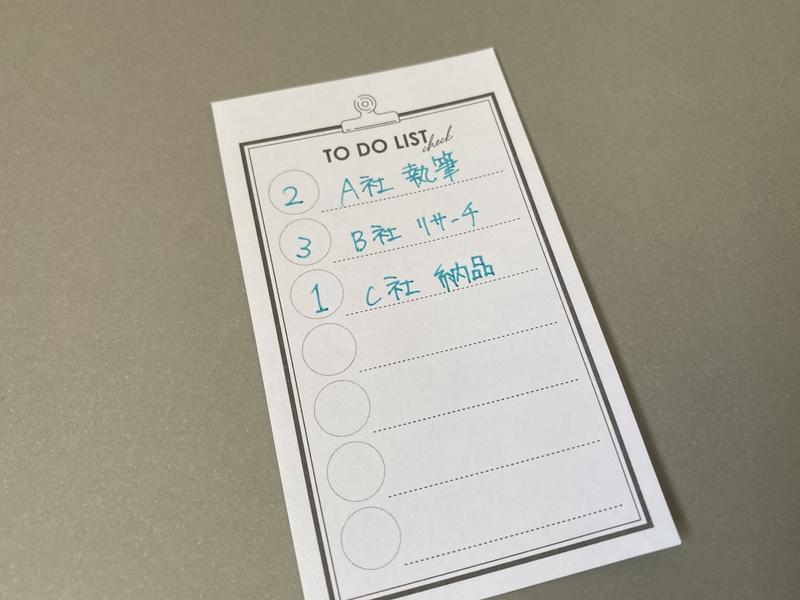 TO DO LIST check
2 A社 執筆
3 B社 リサーチ
1 C社 納品